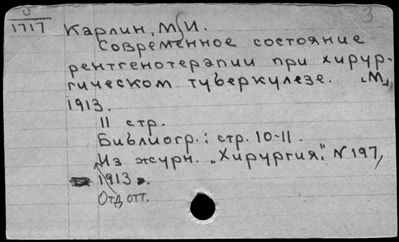 3
1717
Карлин, М. И.
Современное состояние
рентгенотерапии при хирур-
гическом туберкулезе. М.,
1913.
11 стр.
Библиогр.: стр. 10-11.
Из журн. „Хирургия", N 197,
1913.
Отд отт.